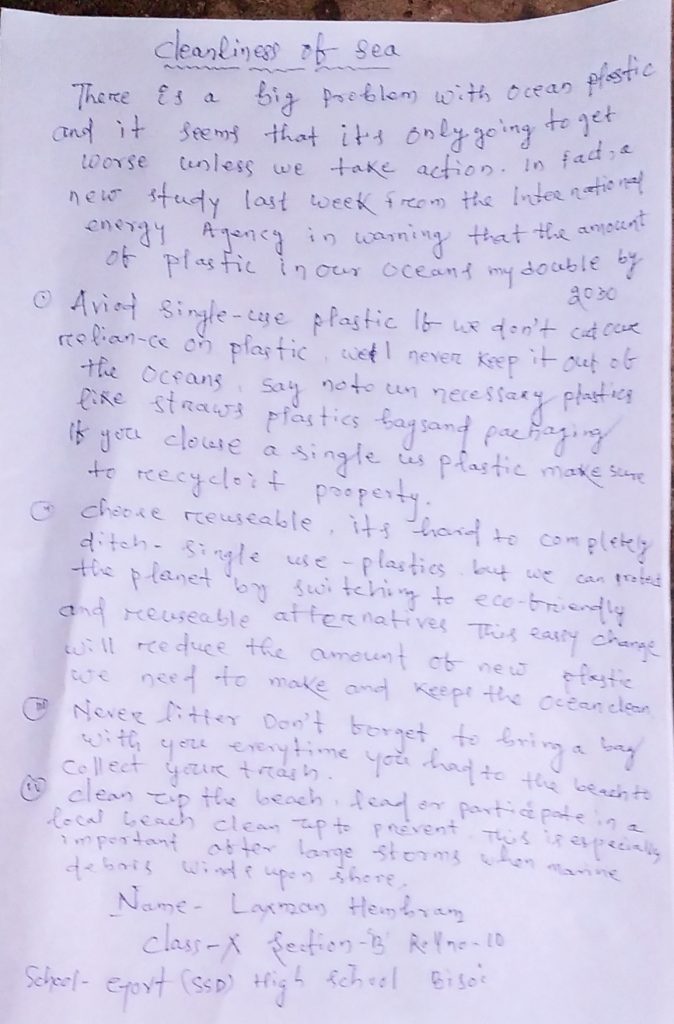 Cleanliness of sea
There is a big problem with ocean plastic
and it seems that it's only going to get
worse unless we take action. In fact, a
new study last week from the International
energy Agency in warning that the amount
of plastic in our oceans my double by
2030
(i) Aviod single-use plastic If we don't cut our
relian-ce on plastic, we'll never keep it out of
the oceans, say no to un necessary plastics
like straws plastics bags and packaging
If you clouse a single us plastic make sure
to recycloit property.
(ii) choose reuseable, its hard to completely
ditch- single use-plastics but we can protect
the planet by switching to eco-friendly
and reuseable alternatives This easly change
will reduce the amount of new plastic
we need to make and keeps the ocean clean
(iii) Never litter Don't forget to bring a bag
with you everytime you had to the beach to
collect your trash.
(iv) clean up the beach, lead or participate in a
local beach clean up to prevent This is especially
important after large storms when marine
debris winds upon shore.
Name- Laxman Hembram
class-X Section-'B' Roll no-10
School- (SSD) High school Bisoi